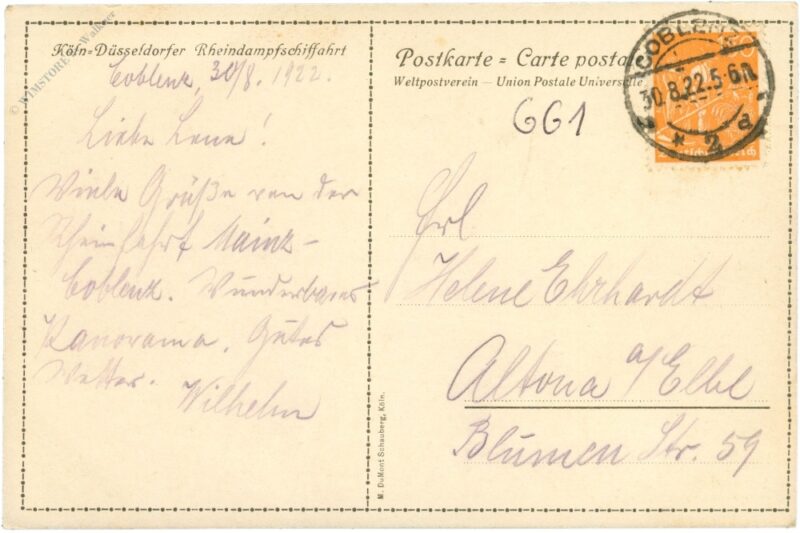 Köln=Düsseldorfer Rheindampfschiffahrt
Coblenz, 30/8. 1922.
Liebe Lene!
Viele Grüße von der
Rheinfahrt Mainz-
Coblenz. Wunderbares
Panorama. Gutes
Wetter.
Wilhelm
Postkarte = Carte postale
Weltpostverein — Union Postale Universelle
661
COBLENZ
30.8.22.5-6N
* 2 d
Deutsches Reich
Frl
Helene Ehrhardt
Altona a/Elbe
Blumen Str. 59
M. DuMont Schauberg, Köln.
© WIMSTORE